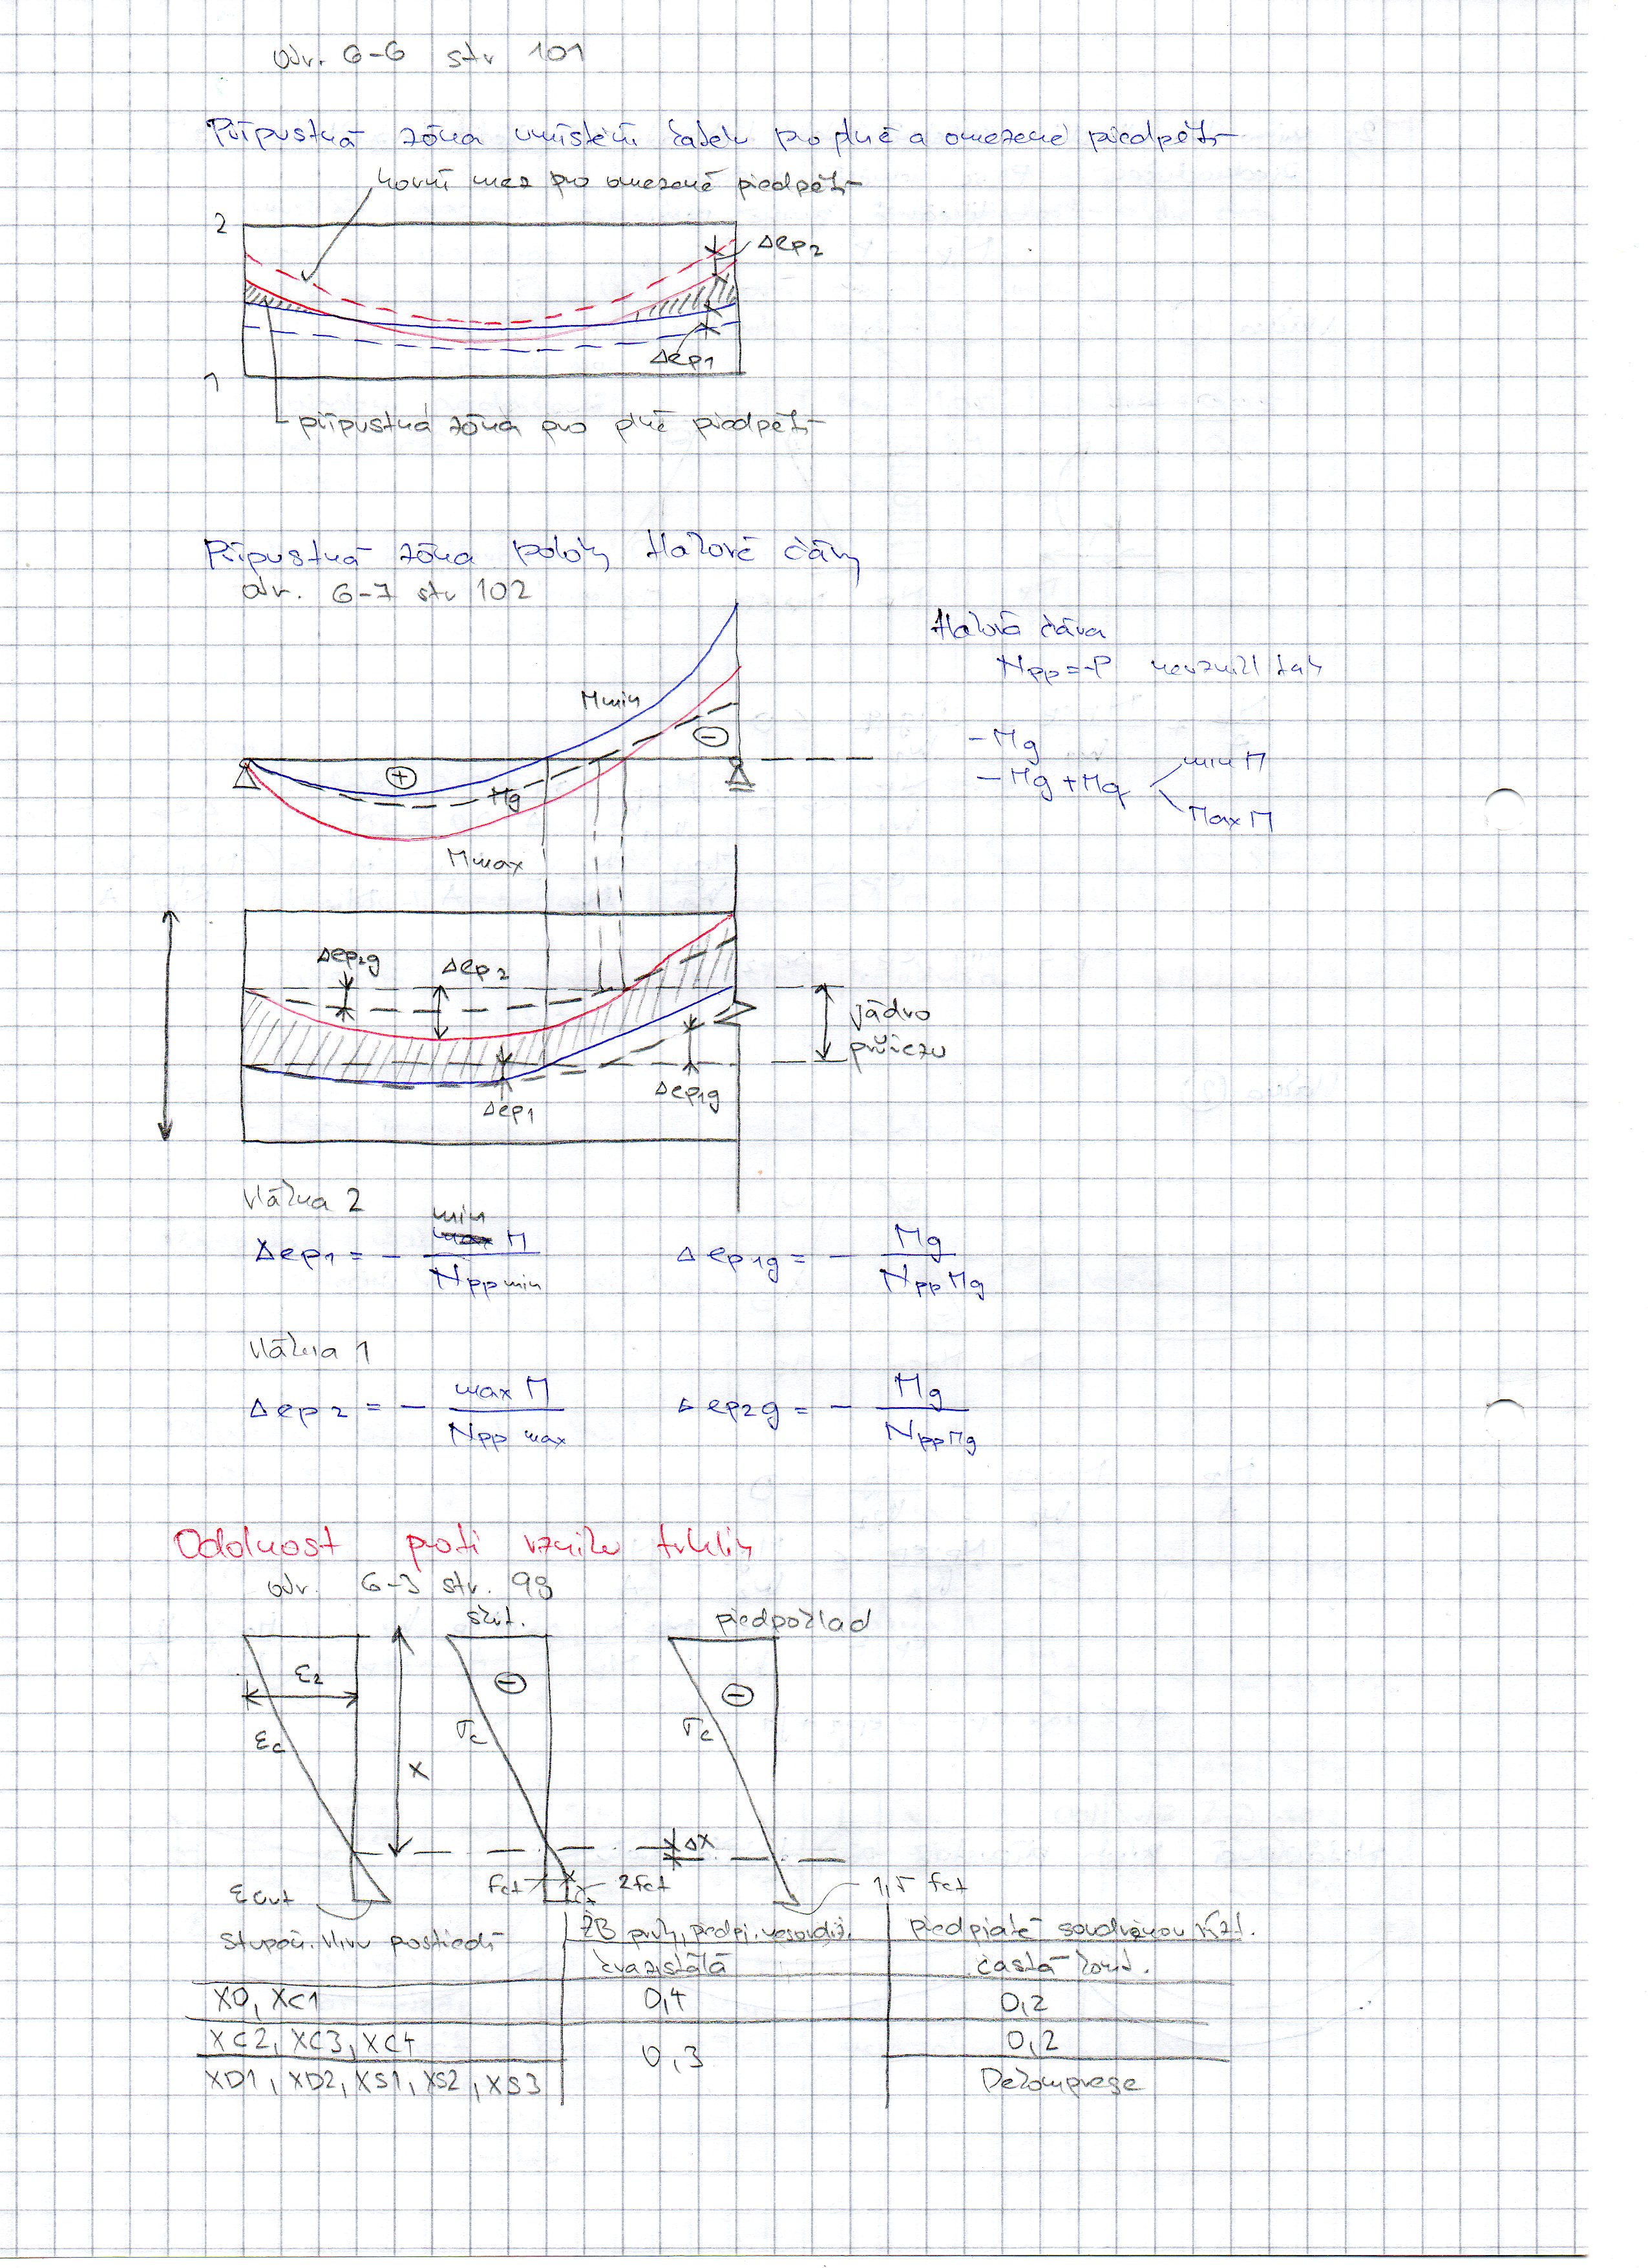 obr. 6-6 str 101
Přípustná zóna umístění kabelu pro plné a omezené předpětí
horní mez pro omezené předpětí
2
Δep2
Δep1
1
přípustná zóna pro plné předpětí
Přípustná zóna polohy tlakové čáry
obr. 6-7 str 102
tlaková čára
Npp=-P nevznikl tah
Mmin
-
- Mg
- Mg + Mq
min M
Max M
+
Mg
Mmax
Δep2g
Δep2
jádro
průřezu
Δep1
Δep1g
vlákna 2
Δep1 = - min M / Npp min
Δep1g = - Mg / Npp Mg
vlákna 1
Δep2 = - max M / Npp max
Δep2g = - Mg / Npp Mg
Odolnost proti vzniku trhlin
obr. 6-3 str. 98
skut.
předpoklad
ε2
-
-
εc
σc
σc
x
Δx
fct
2fct
1,5 fct
εcut
stupeň vlivu prostředí
ŽB prvky, předpj. nesoudrž.
předpjaté soudržnou výzt.
kvazistálá
častá komb.
X0, XC1
0,4
0,2
XC2, XC3, XC4
0,3
0,2
XD1, XD2, XS1, XS2, XS3
Dekomprese